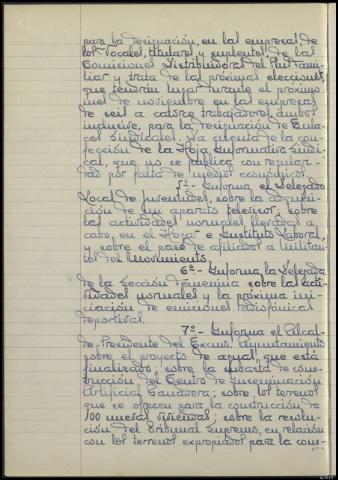 para la designación, en las empresas, de
los Vocales, titulares y suplentes, de las
Comisiones Distribuidoras del Plus Fami-
liar y trata de las próximas elecciones,
que tendrán lugar durante el próximo
mes de noviembre en las empresas
de seis a catorce trabajadores, ambos
inclusive, para la designación de Enla-
ces Sindicales. Da cuenta de la con-
fección de la Hoja Informativa Sindi-
cal, que no se publica con regulari-
dad por falta de medios económicos.
5º.- Informa el Delegado
Local de Juventudes, sobre la adquisi-
ción de un aparato televisor; sobre
las actividades normales llevadas a
cabo, en el Hogar e Instituto Laboral
y sobre el paso de afiliados a Militan-
tes del Movimiento.
6º.- Informa la Delegada
de la Sección Femenina sobre las acti-
vidades normales y la próxima ini-
ciación, de emisiones radiofónicas
deportivas.
7º.- Informa el Alcal-
de-Presidente del Excmo. Ayuntamiento
sobre el proyecto de aguas, que está
finalizado; sobre la subasta de cons-
trucción del Centro de Inseminación
Artificial Ganadera; sobre los terrenos
que se ofrecen para la construcción de
100 nuevas viviendas; sobre la resolu-
ción del Tribunal Supremo, en relación
con los terrenos expropiados para la cons-